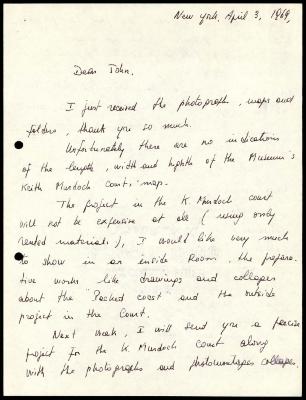 New York, April 3, 1969,
Dear John.
I just received the photograph, maps and
folders, thank you so much.
Unfortunately there are no indications
of the length, width and hights of the Museum's
Keith Murdoch Court, map.
The project in the K. Murdoch court
will not be expensive at all (using only
Rented materials), I would like very much
to show in an inside Room, the prepara-
tive works like drawings and collages
about the "Packed coast" and the outside
project in the Court.
Next week, I will send you a precise
project for the K. Murdoch court along
with the photographs and photomontages collages.